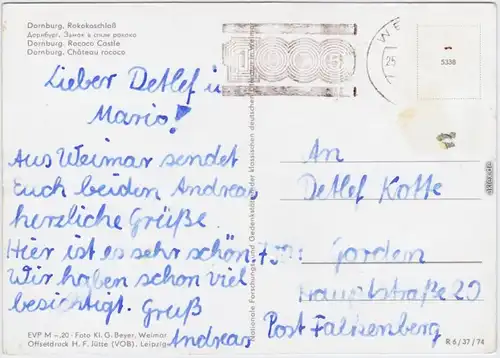 Dornburg, Rokokoschloß
Дорнбург. Замок в стиле рококо
Dornburg. Rococo Castle
Dornburg. Château rococo
1975
WE
25
5338
Lieber Detlef u.
Mario!
Aus Weimar sendet
Euch beiden Andreas
herzliche Grüße.
Hier ist es sehr schön.
Wir haben schon viel
besichtigt. Gruß
Andreas
An
Detlef Kotte
Gorden
Hauptstraße 20
Post Falkenberg
Nationale Forschungs- und Gedenkstätten der klassischen deutschen
EVP M -,20 · Foto Kl. G. Beyer, Weimar
Offsetdruck H. F. Jütte (VOB), Leipzig
R 6/37/74